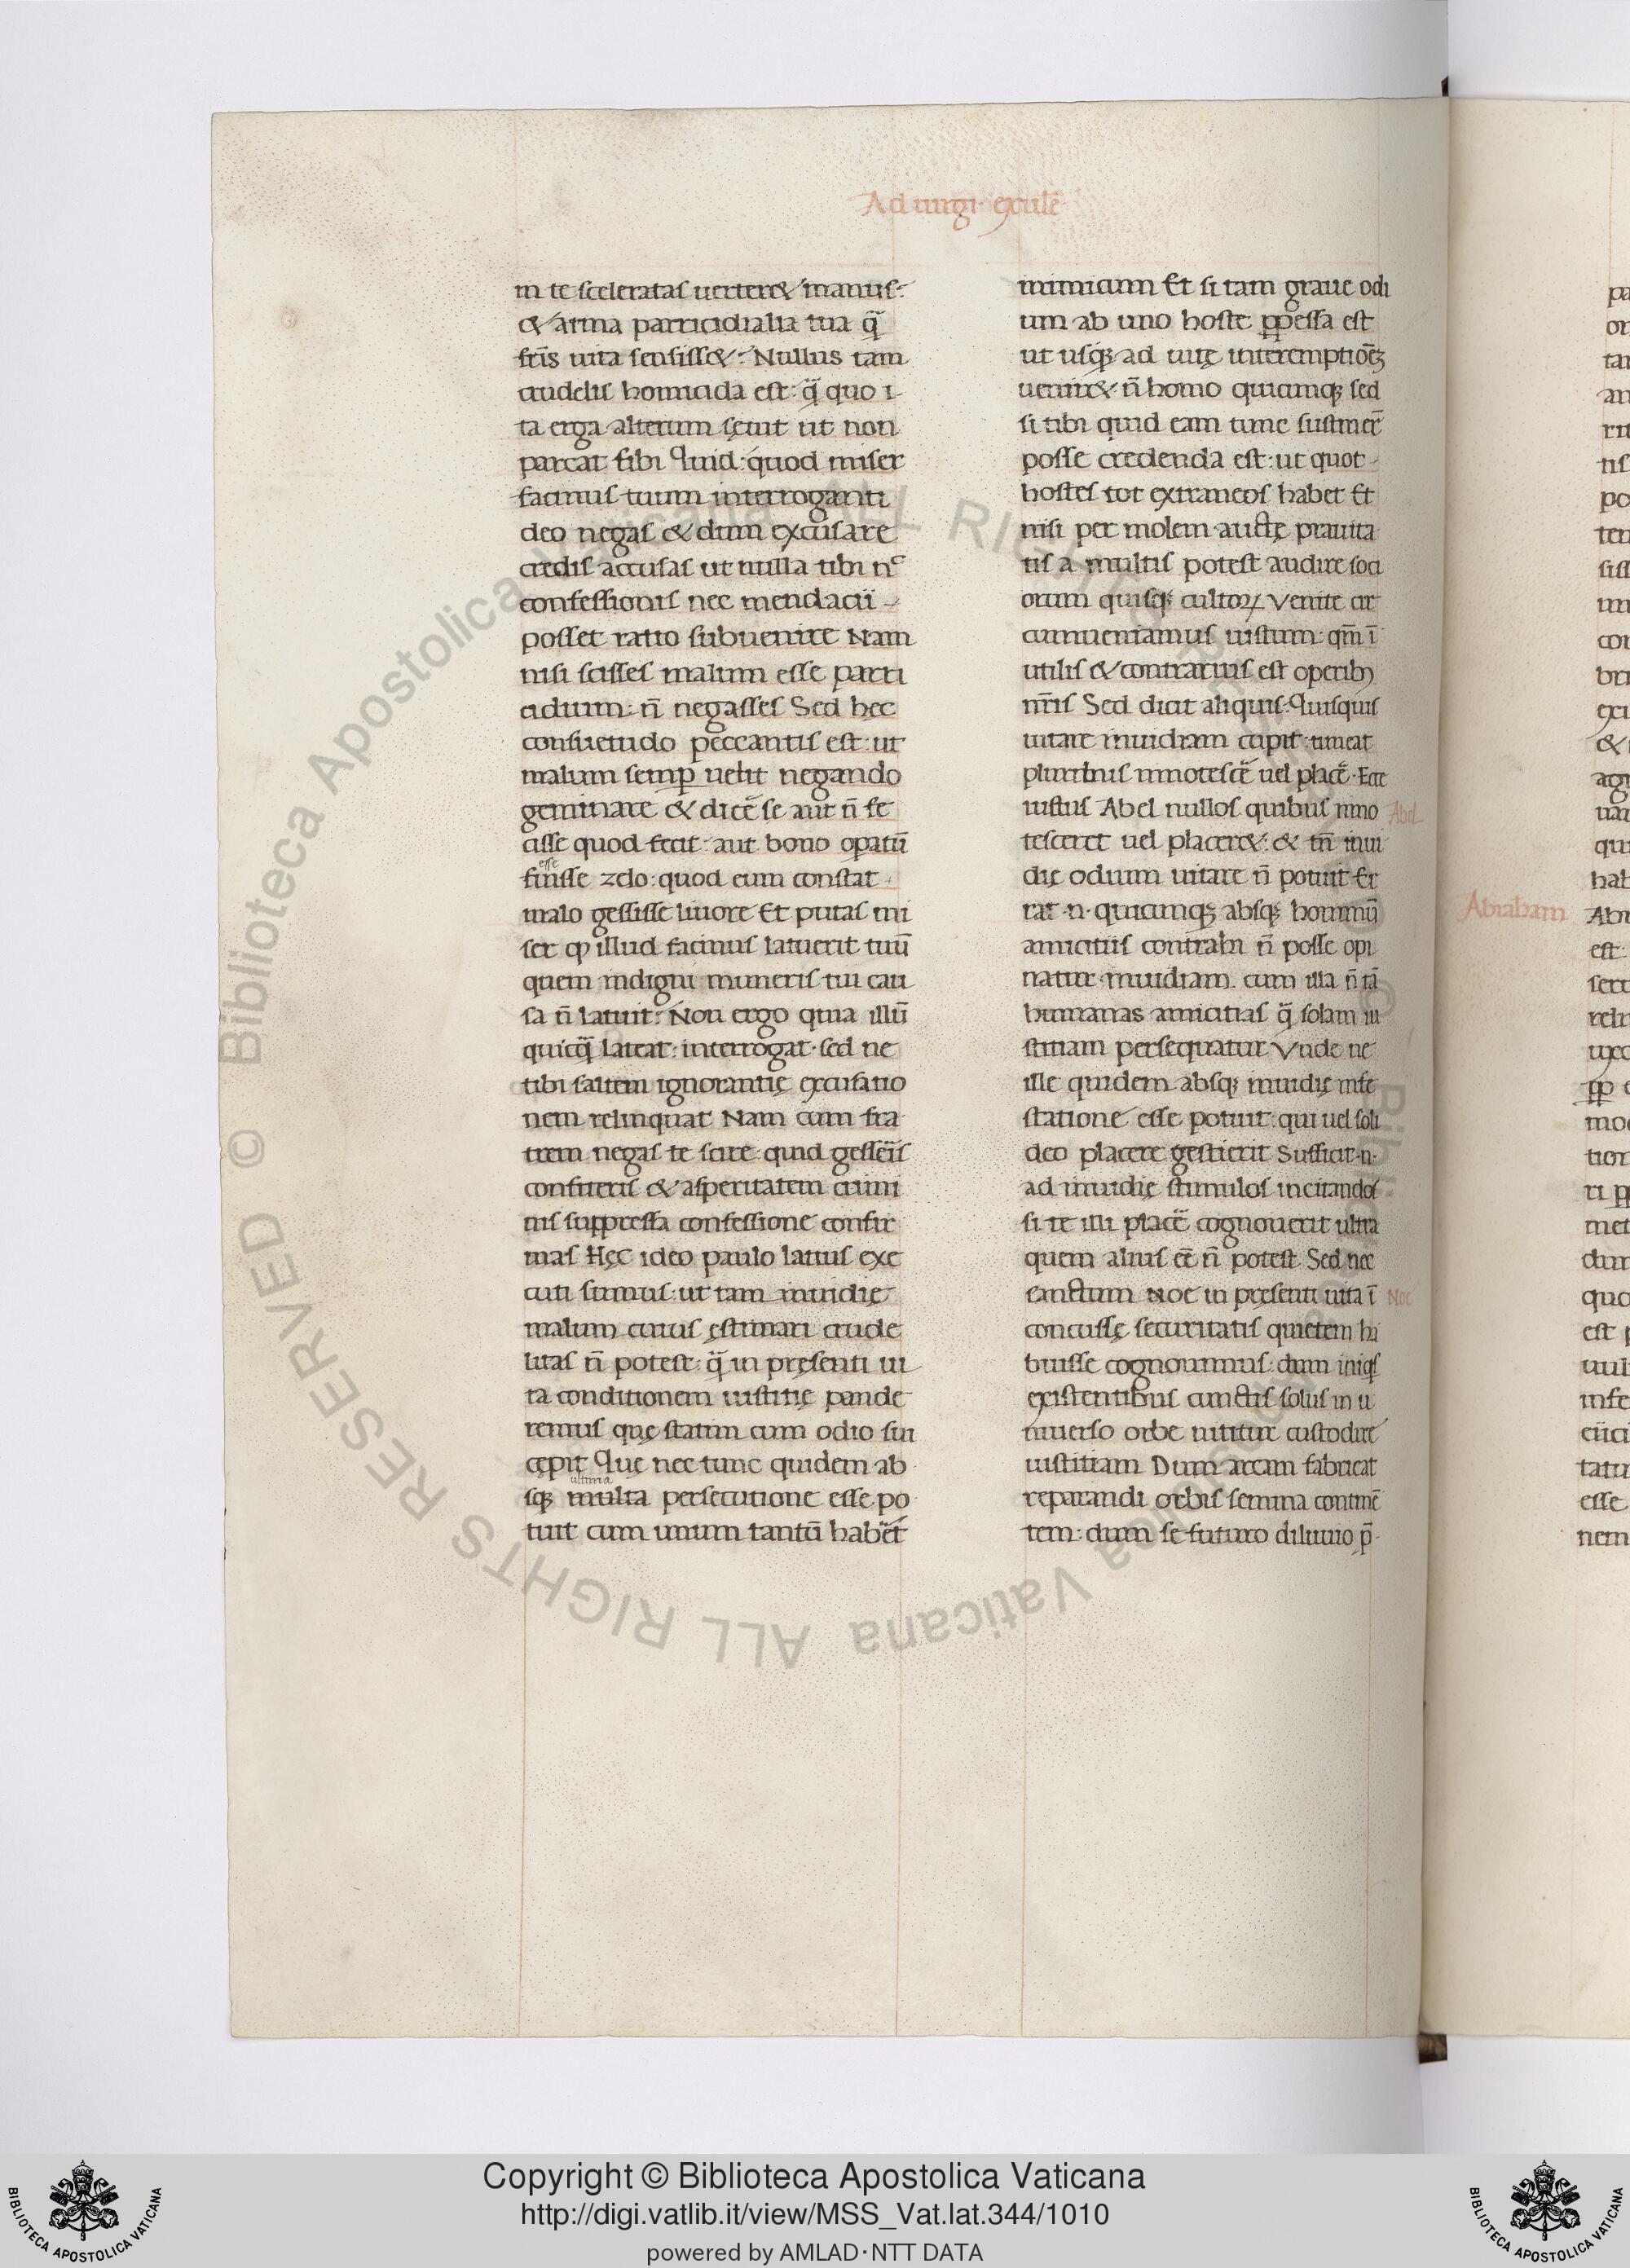 Ad uirgi· exulē
in te sceleratas uerter& manus:
& arma parricidialia tua q̄
fr̄is uita sensiss&: Nullus tam
crudelis homicida est: q̄ quo i
ta erga alterum sęuit ut non
parcat sibi Quid: quod miser
facinus tuum interroganti
deo negas & dum excusare
credis accusas ut nulla tibi nᶜ
confessionis nec mendacii
posset ratio subuenire Nam
nisi scisses malum esse parri
cidium: n̄ negasses Sed hęc
consuetudo peccantis est: ut
malum semꝑ uelit negando
geminare & dicē se aut n̄ fe
cisse quod fecit: aut bono oꝑatū
esse
fuisse zelo: quod eum constat
malo gessisse liuore Et putas mi
ser ꝙ illud facinus latuerit tuū
quem indigni muneris tui cau
sa n̄ latuit: Non ergo quia illū
quicq̄ lateat: interrogat· sed ne
tibi saltem ignorantię excusatio
nem relinquat Nam cum fra
trem negas te scire: quid gessēis
confiteris & asperitatem crimi
nis suppressa confessione confir
mas Hęc ideo paulo latius exe
cuti sumus: ut tam inuidię
malum cuius ęstimari crude
litas n̄ potest: q̄ in pręsenti ui
ta conditionem iustitię pande
remus quę statim cum odio sui
cępit Quę nec tunc quidem ab
ultima
sqꝫ multa persecutione esse po
tuit cum unum tantū habēt
inimicum Et si tam graue odi
um ab uno hoste ꝑpessa est
ut usqꝫ ad uitę interemptiōēꝫ
uenir& n̄ homo quicumqꝫ sed
si tibi quid eam tunc sustiner̄
posse credenda est: ut quot
hostes tot extraneos habet Et
nisi per molem auctę prauita
tis a multis potest audire soci
orum quisqꝫ cultoꝝ Venite cir
cumueniamus iustum: qm̄ ī
utilis & contrarius est operibꝫ
nr̄is Sed dicit aliquis: Quisquis
uitare inuidiam cupit: timeat
pluribus innotescē uel placē· Ecce
iustus Abel nullos quibus inno
Abel
tesceret uel placer&: & tn̄ inui
dię odium uitare n̄ potuit Er
rat ·n· quicumqꝫ absqꝫ hominū
amicitiis contrahi n̄ posse opi
natur inuidiam cum illa n̄ tā
humanas amicitias q̄ solam iu
stitiam persequatur Vnde ne
ille quidem absqꝫ inuidię infe
statione esse potuit: qui uel soli
deo placere gestierit Sufficit ·n·
ad inuidię stimulos incitandos
si te illi placē cognouerit ultra
quem alius ēē n̄ potest Sed nec
sanctum Noe in pręsenti uita ī
Noe
concussę securitatis quietem ha
buisse cognouimus: dum iniqs
existentibus cunctis solus in u
niuerso orbe nititur custodire
iustitiam Dum arcam fabricat
reparandi orbis semina continē
tem: dum se futuro diluuio p̄
Abraham
Copyright © Biblioteca Apostolica Vaticana
http://digi.vatlib.it/view/MSS_Vat.lat.344/1010
powered by AMLAD·NTT DATA